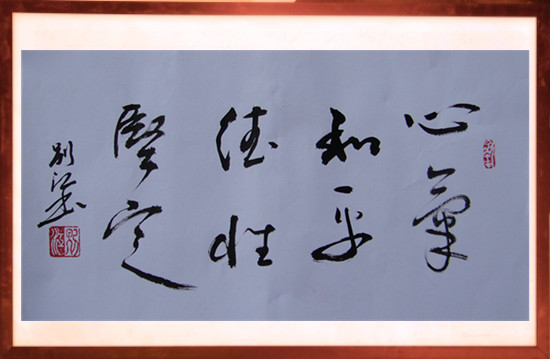 心氣
和平
德性
堅定
別